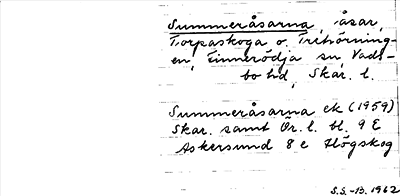 Summeråsarna, åsar,
Torpaskoga o. Trehörning-
en, Finnerödja sn, Vads-
bo hd, Skar. l.
Summeråsarna ek (1959)
Skar. samt Ör. l. bl. 9 E
Askersund 8 e Högskog
S.S. -B. 1962